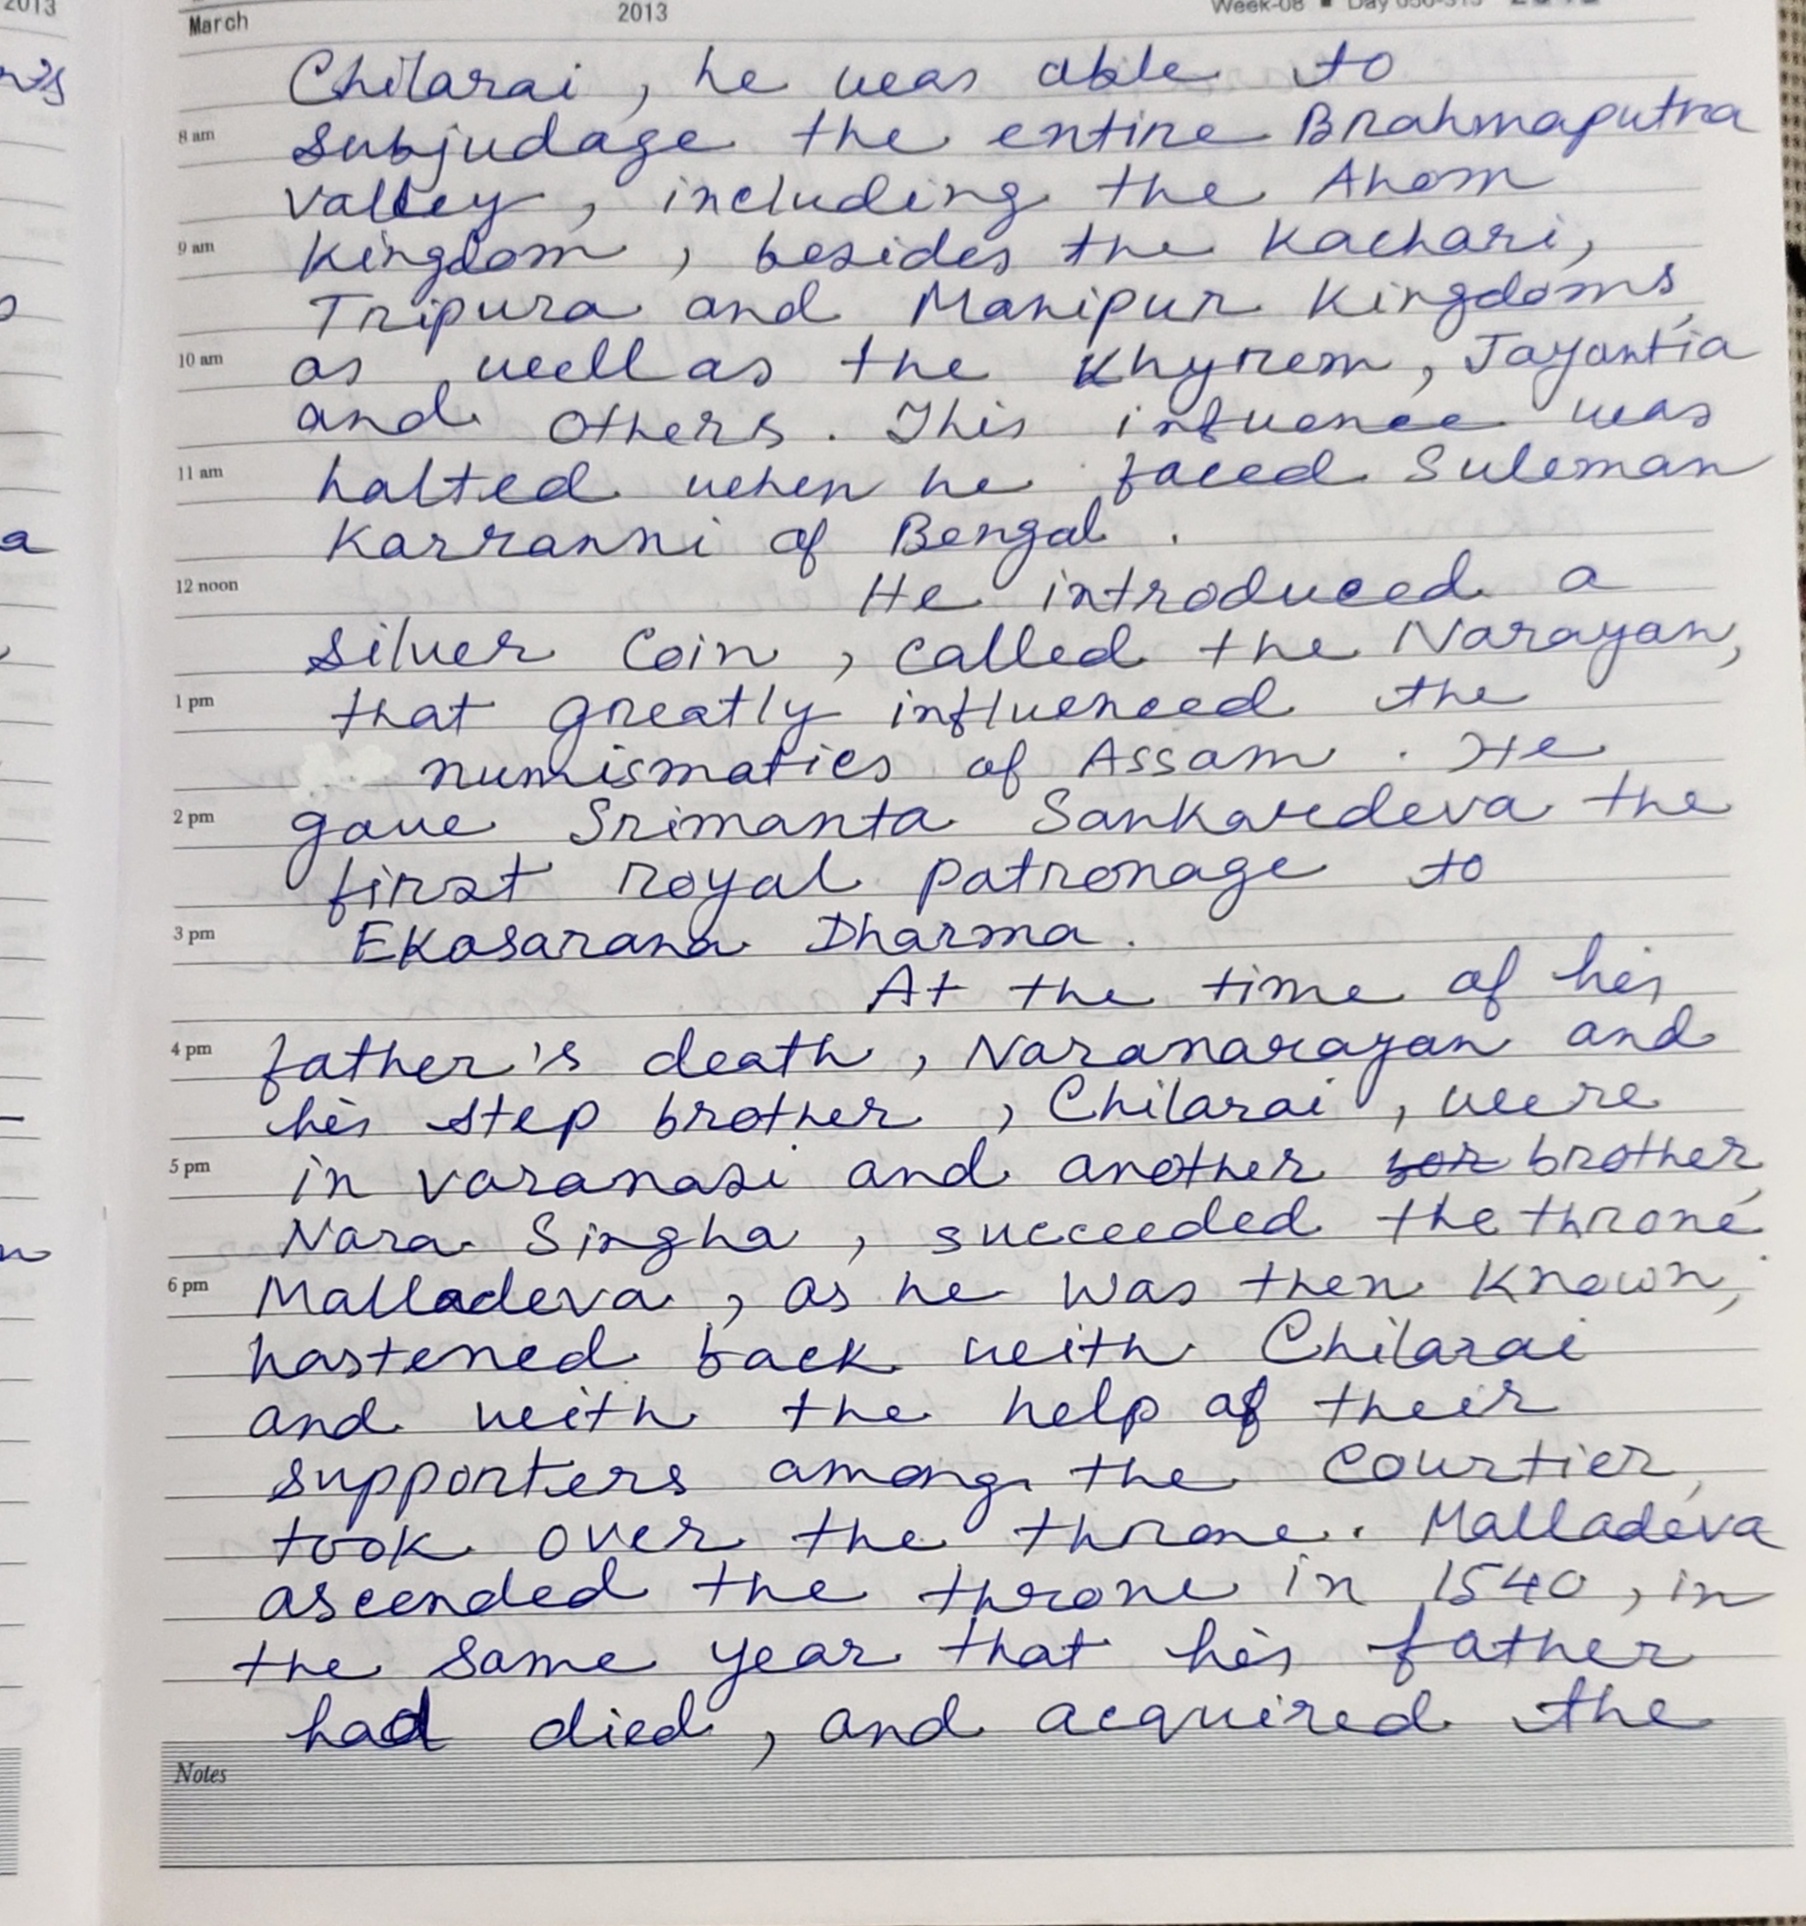 March 2013
Chilarai, he was able to
8 am
subjudage the entire Brahmaputra
valley, including the Ahom
9 am
kingdom, besides the Kachari,
Tripura and Manipur Kingdoms,
10 am
as well as the Khyrem, Jayantia
and others. This infuence was
11 am
halted when he faced Suleman
Karranni of Bengal.
12 noon
He introduced a
silver coin, called the Narayan,
1 pm
that greatly influenced the
numismatics of Assam. He
2 pm
gave Srimanta Sankardeva the
first royal patronage to
3 pm
Ekasarana Dharma.
At the time of his
4 pm
father's death, Naranarayan and
his step brother, Chilarai, were
5 pm
in varanasi and another brother,
Nara Singha, succeeded the throne
6 pm
Malladeva, as he was then known,
hastened back with Chilarai
and with the help of their
supporters among the courtier,
took over the throne. Malladeva
ascended the throne in 1540, in
the same year that his father
had died, and acquired the
Notes